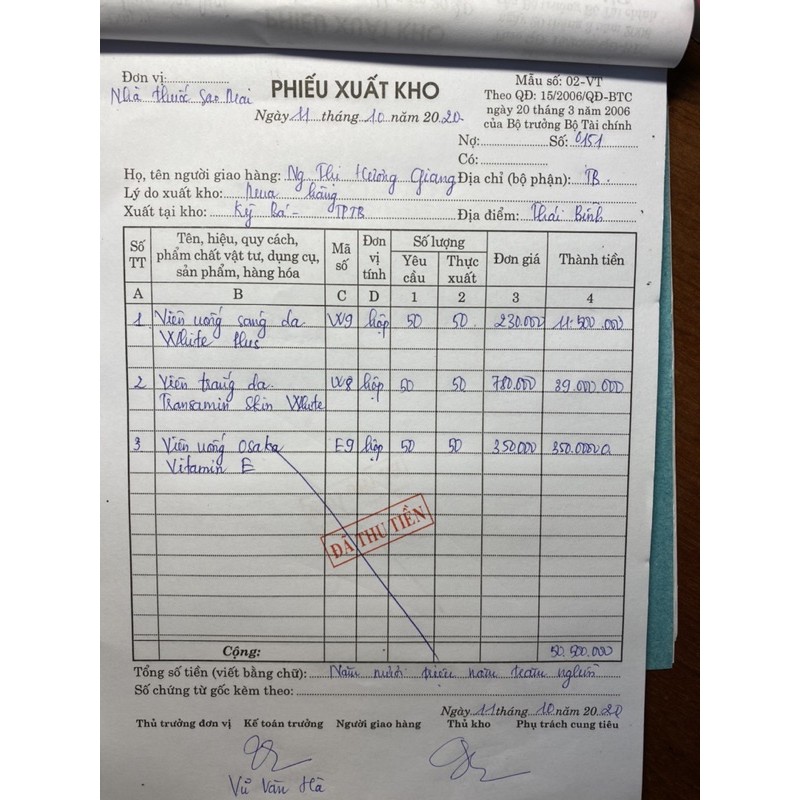 Đơn vị:
Nhà thuốc Sao Mai
PHIẾU XUẤT KHO
Ngày 11 tháng 10 năm 2020
Mẫu số: 02-VT
Theo QĐ: 15/2006/QĐ-BTC
ngày 20 tháng 3 năm 2006
của Bộ trưởng Bộ Tài chính
Nợ: Số: 0151
Có:
Họ, tên người giao hàng: Ng Thị Hương Giang Địa chỉ (bộ phận): TB.
Lý do xuất kho: Mua hàng
Xuất tại kho: Kỳ Bá - TPTB Địa điểm: Thái Bình
Số TT Tên, hiệu, quy cách, phẩm chất vật tư, dụng cụ, sản phẩm, hàng hóa Mã số Đơn vị tính Số lượng Yêu cầu Thực xuất Đơn giá Thành tiền
A B C D 1 2 3 4
1 Viên uống sáng da W9 hộp 50 50 230.000 11.500.000
White Plus
2 Viên trắng da W8 hộp 50 50 780.000 39.000.000
Transamin Skin White
3 Viên uống Osaka E9 hộp 50 50 350.000 350.00000
Vitamin E
ĐÃ THU TIỀN
Cộng: 50.500.000
Tổng số tiền (viết bằng chữ): Năm mươi triệu năm trăm nghìn
Số chứng từ gốc kèm theo:
Ngày 11 tháng 10 năm 2020
Thủ trưởng đơn vị Kế toán trưởng Người giao hàng Thủ kho Phụ trách cung tiêu
Vũ Văn Hà